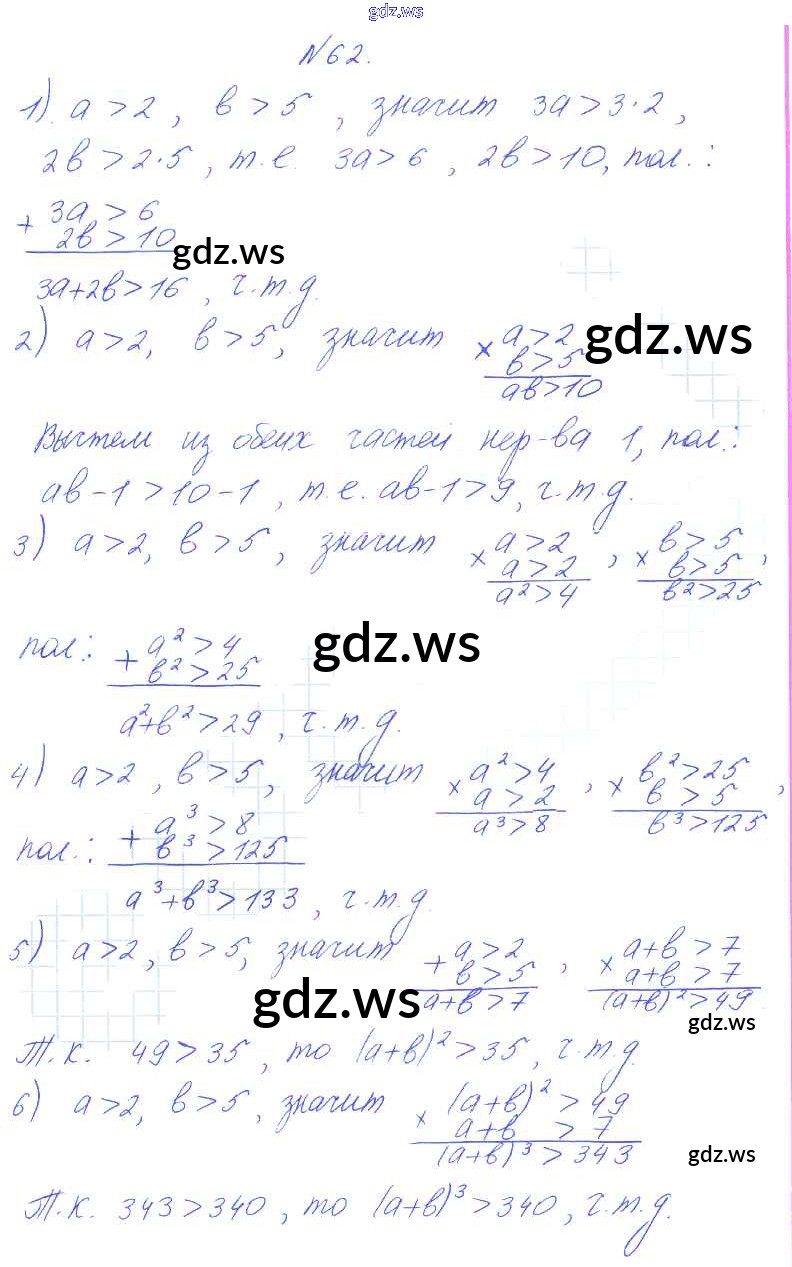 gdz.ws
№62.
1) a>2, в>5, значит 3a>3·2,
2в>2·5, т.е. 3a>6, 2в>10, пол.:
+ 3a>6
2в>10
gdz.ws
3a+2в>16, ч.т.д.
2) a>2, в>5, значит × a>2
в>5
ав>10
gdz.ws
Вычтем из обеих частей нер-ва 1, пол.:
ав-1>10-1, т.е. ав-1>9, ч.т.д.
3) a>2, в>5, значит × a>2, × в>5,
a>2 в>5
a²>4 в²>25
пол: + a²>4
в²>25
gdz.ws
a²+в²>29, ч.т.д.
4) a>2, в>5, значит × a²>4, × в²>25,
a>2 в>5
a³>8 в³>125
пол.: + a³>8
в³>125
a³+в³>133, ч.т.д.
5) a>2, в>5, значит + a>2, × a+в>7
в>5 a+в>7
a+в>7 (a+в)²>49
gdz.ws
gdz.ws
Т.к. 49>35, то (a+в)²>35, ч.т.д.
6) a>2, в>5, значит × (a+в)²>49
a+в>7
(a+в)³>343
gdz.ws
Т.к. 343>340, то (a+в)³>340, ч.т.д.